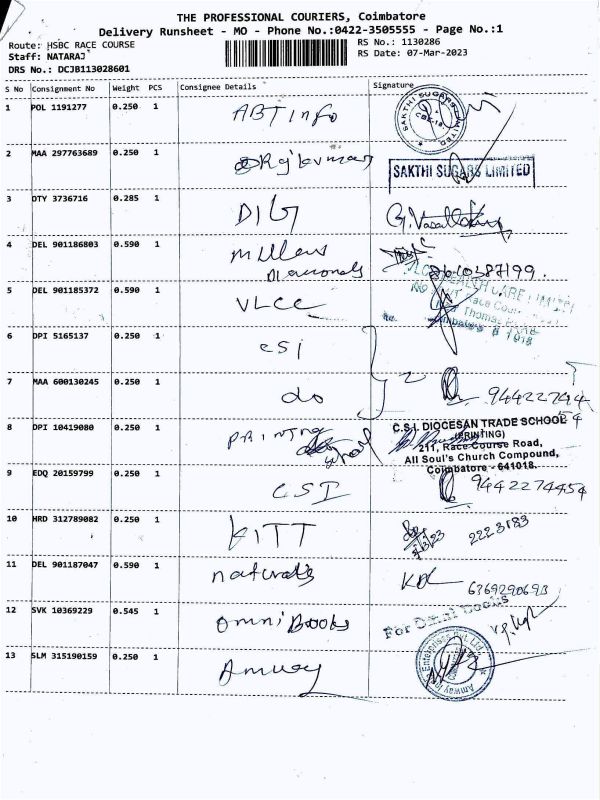 THE PROFESSIONAL COURIERS, Coimbatore
Delivery Runsheet - MO - Phone No.:0422-3505555 - Page No.:1
Route: HSBC RACE COURSE
RS No.: 1130286
Staff: NATARAJ
RS Date: 07-Mar-2023
DRS No.: DCJB113028601
S No Consignment No Weight PCS Consignee Details Signature
1 POL 1191277 0.250 1 ABT info
SAKTHI SUGARS LIMITED
2 MAA 297763689 0.250 1 Rajkumar
SAKTHI SUGARS LIMITED
3 OTY 3736716 0.285 1 DIG
4 DEL 901186803 0.590 1 Millens
Diamonds
5 DEL 901185372 0.590 1 VLCC
6 DPI 5165137 0.250 1 csi
7 MAA 600130245 0.250 1 do 2
8 DPI 10419080 0.250 1 Printing School
C.S.I. DIOCESAN TRADE SCHOOL
(PRINTING)
211, Race Course Road,
All Soul's Church Compound,
Coimbatore - 641018.
9 EDQ 20159799 0.250 1 CSI 9442274454
10 HRD 312789082 0.250 1 KITT 2223183
11 DEL 901187047 0.590 1 naturals 6369290693
12 SVK 10369229 0.545 1 Omni Books
For Omni Books
13 SLM 315190159 0.250 1 Amway